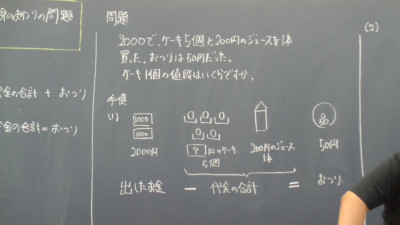 おつりの問題
代金の合計 + おつり
代金の合計 = おつり
問題
2000で、ケーキ5個と200円のジュースを1本
買った。おつりは50円だった。
ケーキ1個の値段はいくらですか。
手順
(1)
1000
1000
50
2000円
?円のケーキ
5個
200円のジュース
1本
50円
出したお金 － 代金の合計 = おつり
(2)